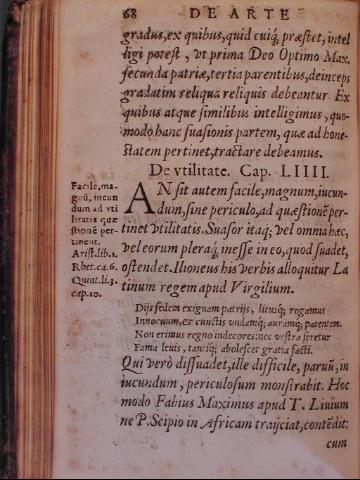 68 DE ARTE
gradus, ex quibus, quid cuiq́;, præstet, intel
ligi potest, vt prima Deo Optimo Max.
secunda patriæ, tertia parentibus, deinceps
gradatim reliqua reliquis debeantur. Ex
quibus atque similibus intelligimus, quo-
modo hanc suasionis partem, quæ ad hone-
statem pertinet, tractare debeamus.
De vtilitate. Cap. LIIII.
AN sit autem facile, magnum, iucun-
dum, sine periculo, ad quæstionē per-
tinet vtilitatis. Suasor itaq́;, vel omnia hæc,
vel eorum pleraq́;, inesse in eo, quod suadet,
ostendet. Ilioneus his verbis alloquitur La
tinum regem apud Virgilium.
Facile, ma-
gnū, iucun
dum ad vti
litatis quæ
stionē per-
tinent.
Arist. lib. 1.
Rhet. ca. 6.
Quint. li. 3.
cap. 10.
Dijs sedem exiguam patrijs, litusq́; rogamus
Innocuum, et cunctis vndamq́; auramq́; patentem.
Non erimus regno indecores: nec vestra feretur
Fama leuis, tantiq́; abolescet gratia facti.
Qui verò dissuadet, ille difficile, paruū, in
iucundum, periculosum monstrabit. Hoc
modo Fabius Maximus apud T. Liuium
ne P. Scipio in Africam traijciat, contēdit:
cum